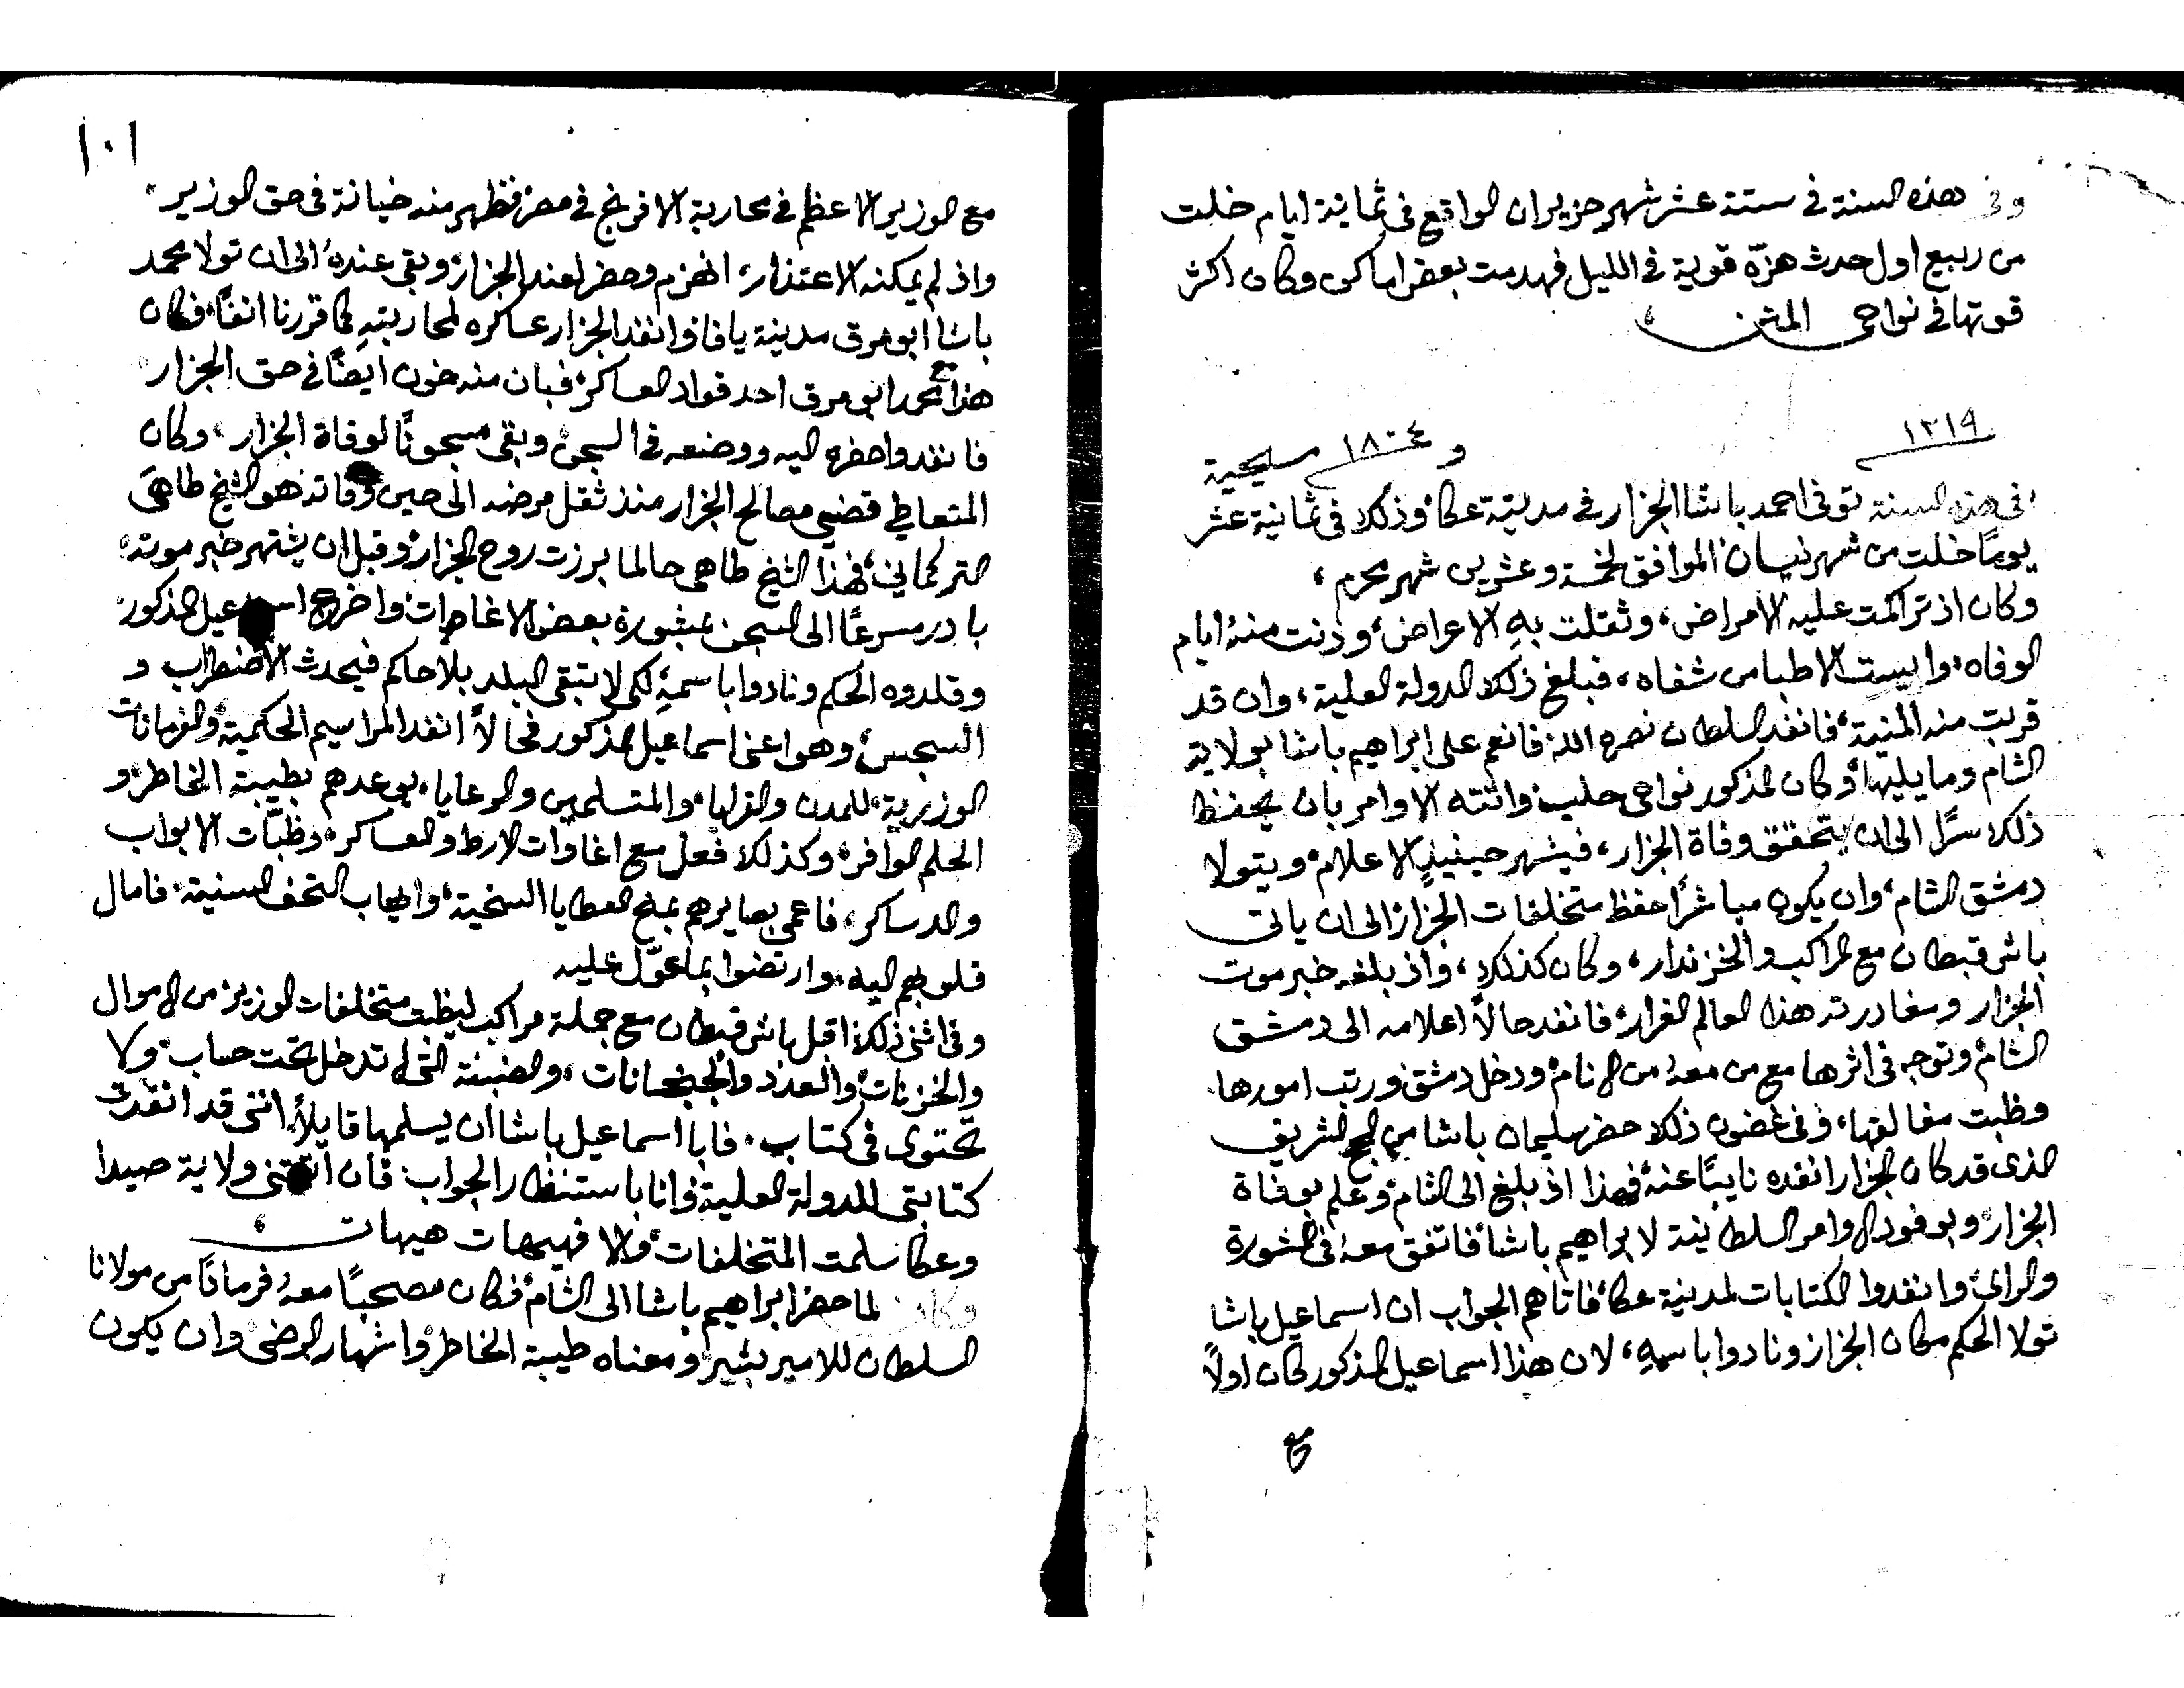 وفي هذه السنة في ستة عشر شهر حزيران الواقع في ثمانية ايام خلت
من ربيع اول حدث هزّة قوية في الليل فهدمت بعض اماكن وكان اكثر
قوتها في نواحي المتن
١٢١٩ و ١٨٠٤ مسيحية
في هذه السنة توفى احمد باشا الجزار في مدينة عكا وذلك في ثمانية عشر
يومًا خلت من شهر نيسان الموافق لخمسة وعشرين شهر محرم،
وكان اذ تراكمت عليه الامراض، وثقلت بهِ الاعراض، ودنت منهُ ايام
الوفاه، وايست الاطبا من شفاه، فبلغ ذلك الدولة العلية، وان قد
قربت منه المنية، فانفد السلطان نصره الله فانعم على ابراهيم باشا بولاية
الشام وما يليها، وكان المذكور نواحي حلب، واتته الاوامر بان يحفظ
ذلك سرًا الى ان يتحقق وفاة الجزار، فيشهر حينيذٍ الاعلام، ويتولا
دمشق الشام، وان يكون مباشرًا حفظ متخلفات الجزار الى ان ياتي
باش قبطان مع المراكب والخزندار، وكان كذلك، واذ بلغه خبر موت
الجزار ومغادرته هذا العالم الغرار، فانفد حالاً اعلامه الى دمشق
الشام، وتوجه في اثرها مع من معهُ من الانام، ودخل دمشق ورتب امورها
وظبت مغالقها، وفي غضون ذلك حضر سليمان باشا من الحج الشريف
الذي قد كان الجزار انفده نايبًا عنهُ، فهذا اذ بلغ الى الشام، وعلم بوفاة
الجزار، وبوفود الاوامر السلطانية لابراهيم باشا، فاتفق معهُ في المشورة
والراي، وانفدوا الكتابات لمدينة عكا، فاتاهم الجواب ان اسماعيل باشا
تولا الحكم مكان الجزار ونادوا باسمهِ، لان هذا اسماعيل المذكور كان اولاً
مع
١٠١
مع الوزير الاعظم في محاربة الافرنج في مصر، فظهر منه خيانة في حق الوزير
واذ لم يمكنه الاعتذار، انهزم وحضر لعند الجزار، وبقي عندهُ الى ان تولا محمد
باشا ابو مرق مدينة يافا، وانفد الجزار عساكره لمحاربتهِ كما قررنا انفًا، فكان
هذا مع محمد ابو مرق احد قواد العساكر، فبان منه خون ايضًا في حق الجزار
فانفد واحضره اليه ووضعه في السجن، وبقي مسجونًا لوفاة الجزار، وكان
المتعاطي قضي مصالح الجزار منذ ثقل مرضه الى حين وفاته هو الشيخ طاهى
التركماني، فهذا الشيخ طاهى حالما برزت روح الجزار، وقبل ان يشتهر خبر موته
بادر مسرعًا الى السجن بمشورة بعض الاغاوات، واخرج اسماعيل المذكور
وقلدوه الحكم ونادوا باسمهِ، لكي لا تبقى البلد بلا حاكم فيحدث الاضطراب و
السجس، وهو اعني اسماعيل المذكور في حالاً انفد المراسيم الحكمية، والفرمانات
الوزيرية، للمدن والقرايا، والمتسلمين والرعايا، يوعدهم بطيبة الخاطر، و
الحلم الوافر، وكذلك فعل مع اغاوات الارط والعساكر، وظبّات الابواب
والدساكر، فاعمى بصايرهم بمنح العطايا السخية، وايهاب التحف السنية، فامال
قلوبهم اليه، وارتضوا بما عوّل عليه
وفي اثنى ذلك، اقبل باش قبطان مع جملة مراكب ليظبت متخلفات الوزير من الاموال
والخزنات، والعدد والجبخانات، والضبنة التي لا تدخل تحت حساب، ولا
تحتوى في كتاب، فابا اسماعيل باشا ان يسلمها قايلاً، انني قد انفدت
كتابتي للدولة العلية، وانا باستنظار الجواب، فان اتتني ولاية صيدا
وعكا سلمت المتخلفات، والا فهيهات هيهات
وكان لما حضر ابراهيم باشا الى الشام، فكان مصحبًا معهُ فرمانًا من مولانا
السلطان للامير بشير، ومعناه طيبة الخاطر، واشهار الرضى، وان يكون